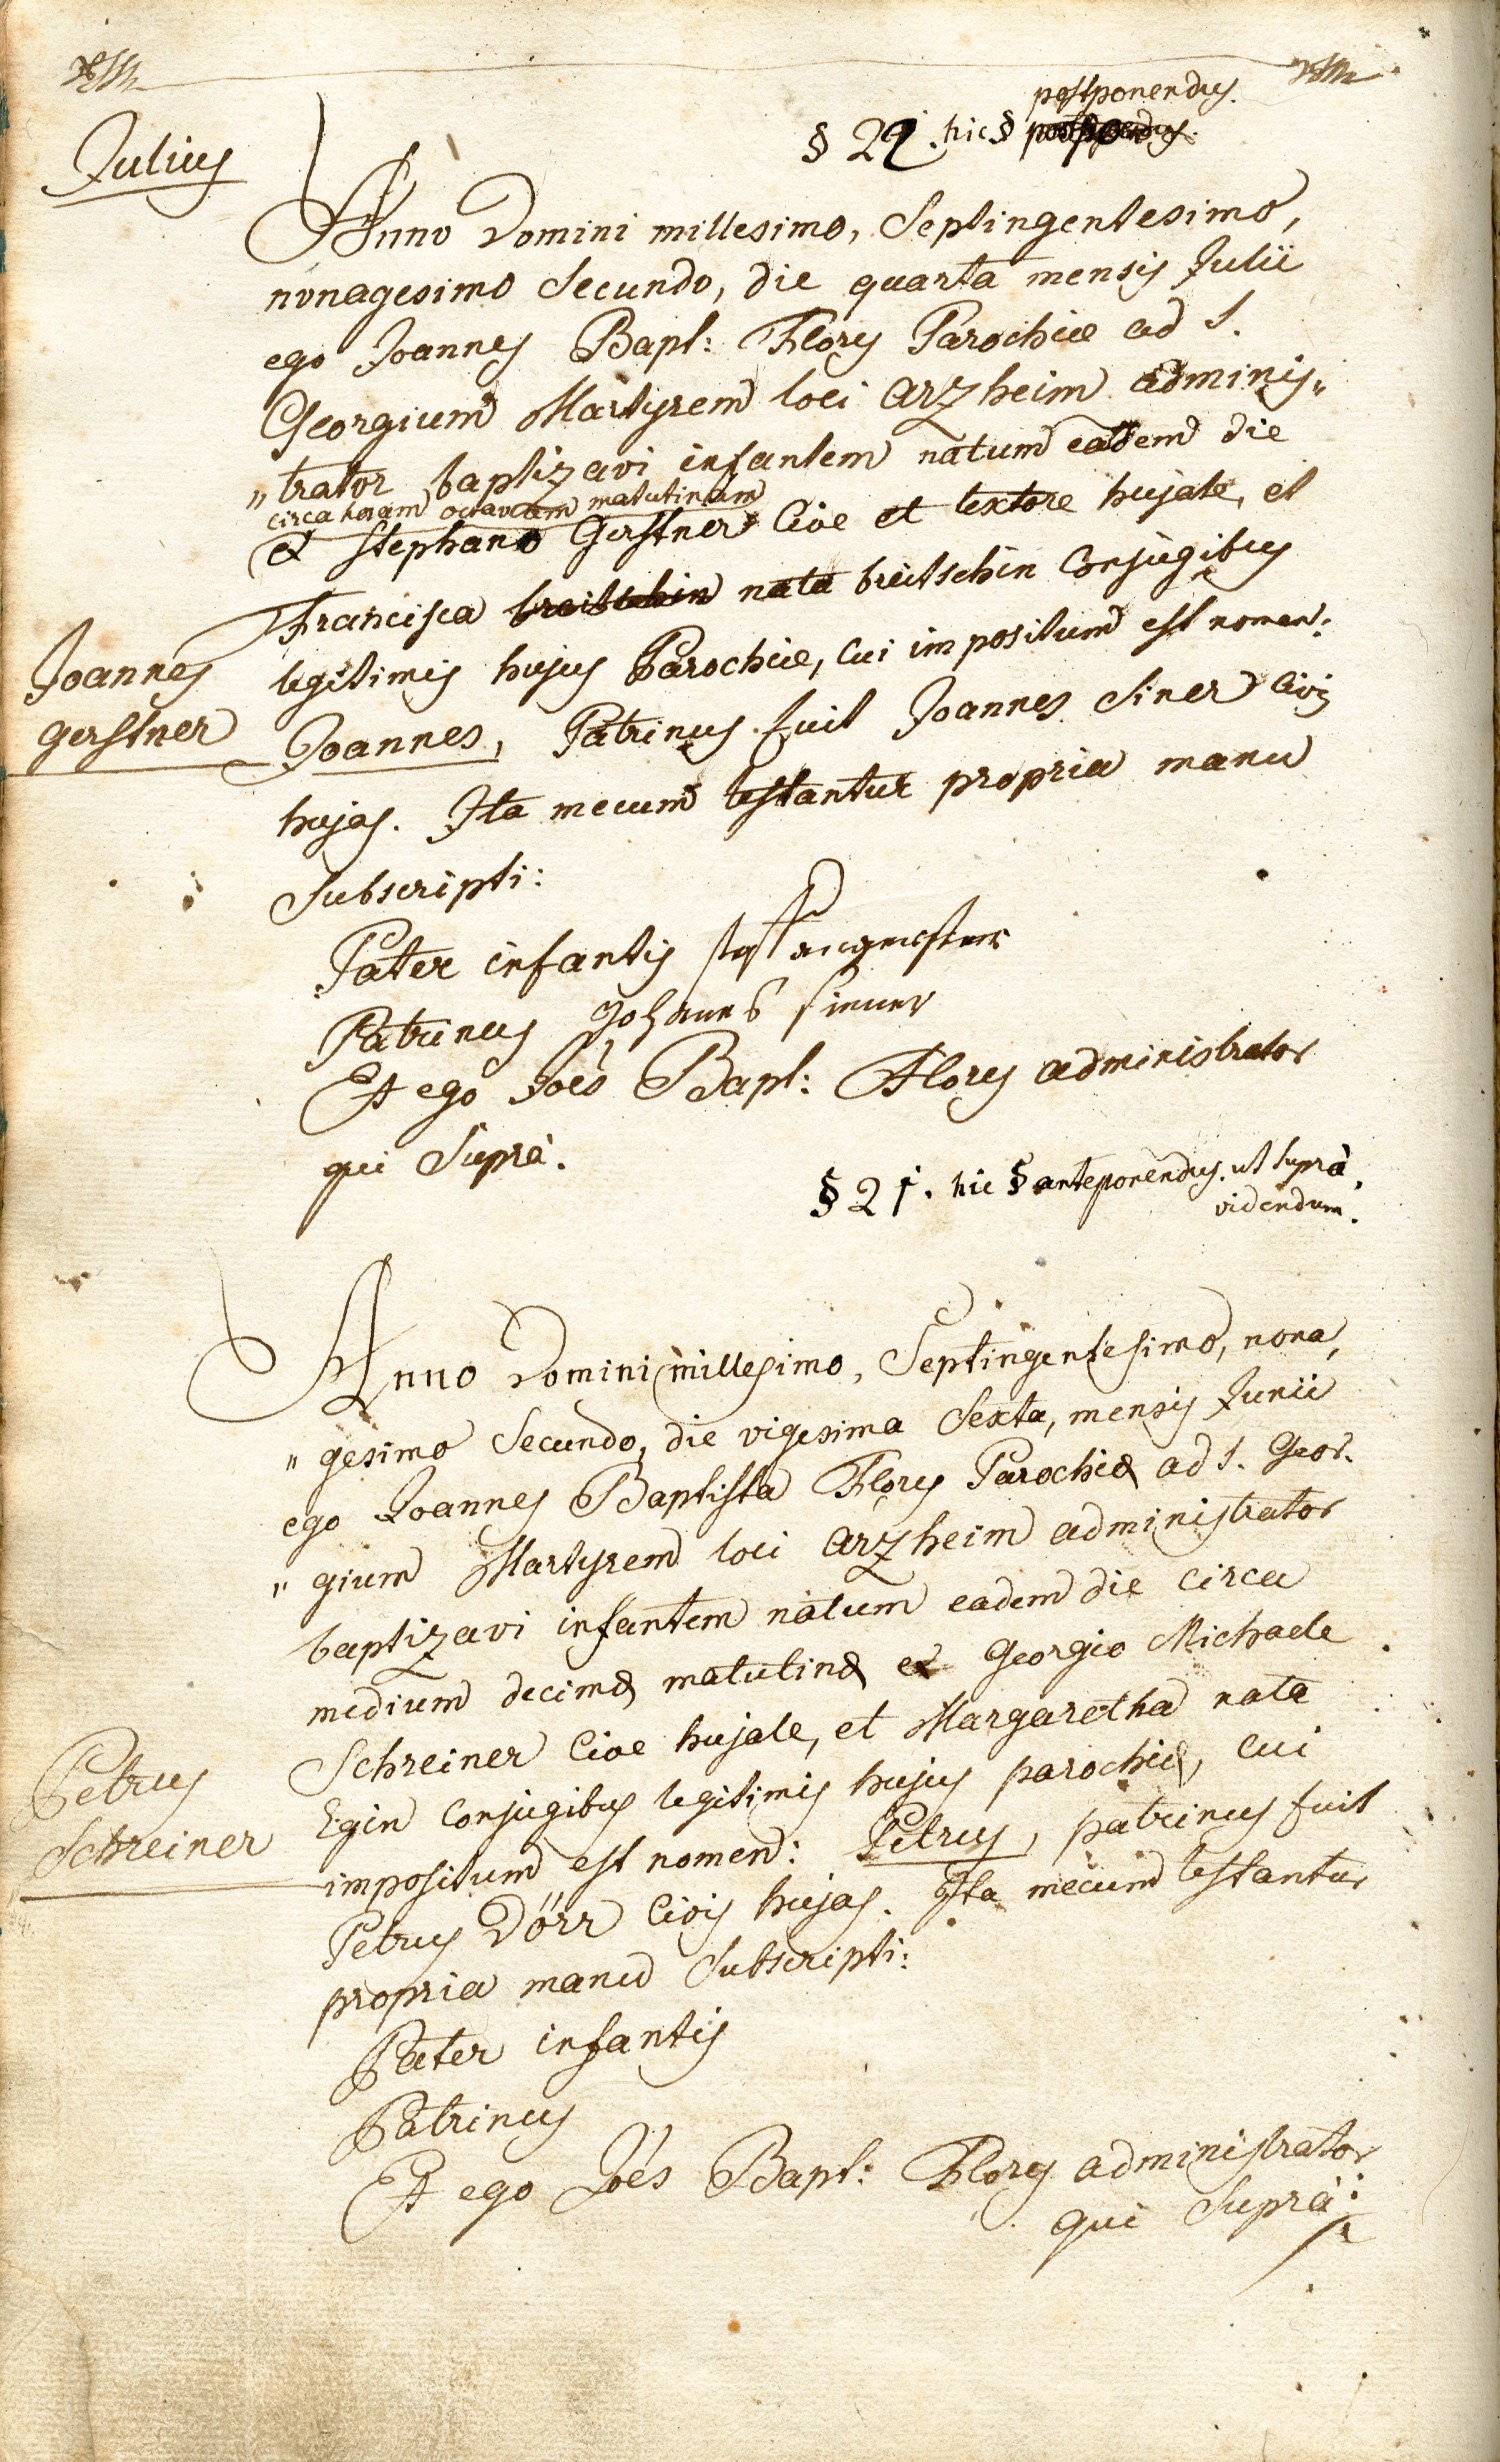 postponendus.
§ 22. hic §
Julius
Anno Domini millesimo, Septingentesimo,
nonagesimo Secundo, die quarta mensis Julii
ego Joannes Bapt: Flory Parochiæ ad S.
Georgium Martyrem loci Arzheim adminis„
„trator baptizavi infantem natum eadem die
circa horam octavam matutinam
ex Stephano Gerstner Cive et textore hujate, et
Francisca breitschin nata breitschin Conjugibus
legitimis hujus Parochiæ, Cui impositum est nomen:
Joannes
gerstner
Joannes, Patrinus fuit Joannes Siner Civis
hujas. Ita mecum testantur propria manu
Subscripti:
Pater infantis
Patrinus Johannes Sinner
Et ego Joês Bapt: Flory administrator
qui Suprà.
§ 21. hic § anteponendus. ut suprà
videndum.
Anno Domini millesimo, Septingentesimo, nona„
„gesimo Secundo, die vigesima Sexta, mensis Junii
ego Joannes Baptista Flory Parochiæ ad S. Geor„
„gium Martyrem loci Arzheim administrator
baptizavi infantem natum eadem die circa
medium decimæ matutinæ ex Georgio Michaele
Schreiner Cive hujate, et Margaretha nata
Egin Conjugibus legitimis hujus parochiæ, cui
Petrus
Schreiner
impositum est nomen: Petrus, patrinus fuit
Petrus Dörr Civis hujas. Ita mecum testantur
propria manu Subscripti:
Pater infantis
Patrinus
Et ego Joês Bapt: Flory administrator
qui Suprà: